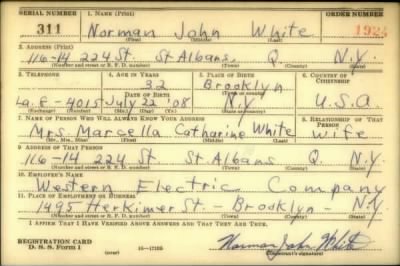 SERIAL NUMBER 1. NAME (Print) ORDER NUMBER
311 Norman John White 1923
(First) (Middle) (Last)
2. ADDRESS (Print)
116-14 224 St. St Albans, Q. N.Y.
(Number and street or R. F. D. number) (Town) (County) (State)
3. TELEPHONE 4. AGE IN YEARS 5. PLACE OF BIRTH 6. COUNTRY OF CITIZENSHIP
32 Brooklyn
DATE OF BIRTH
La.8-4015 July 22 '08 N.Y. U.S.A.
(Exchange) (Number) (Mo.) (Day) (Yr.) (State or country)
7. NAME OF PERSON WHO WILL ALWAYS KNOW YOUR ADDRESS 8. RELATIONSHIP OF THAT PERSON
Mrs. Marcella Catharine White Wife
(Mr., Mrs., Miss) (First) (Middle) (Last)
9. ADDRESS OF THAT PERSON
116-14 224 St. St Albans Q. N.Y.
(Number and street or R. F. D. number) (Town) (County) (State)
10. EMPLOYER'S NAME
Western Electric Company
11. PLACE OF EMPLOYMENT OR BUSINESS
1495 Herkimer St. - Brooklyn - N.Y.
(Number and street or R. F. D. number) (Town) (County) (State)
I AFFIRM THAT I HAVE VERIFIED ABOVE ANSWERS AND THAT THEY ARE TRUE.
REGISTRATION CARD
D. S. S. Form 1 16-17105 Norman John White
(Registrant's signature)